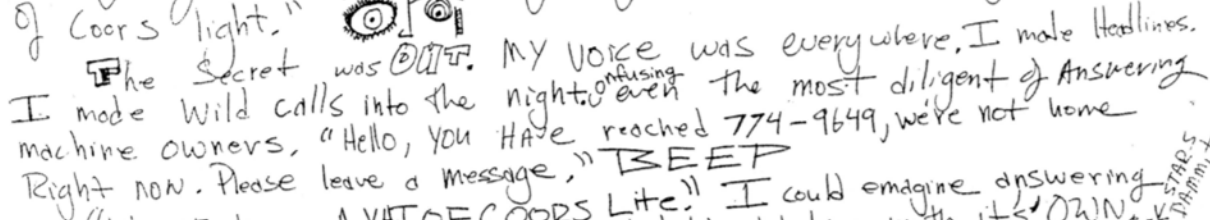 of Coors light."
The Secret was OUT. MY VOICE was everywhere. I made Headlines.
I made Wild calls into the night, confusing even the most diligent of Answering
machine owners. "Hello, YOU HAVE reached 774-9649, we're not home
Right now. Please leave a message." BEEP
A VAT OF COORS Lite." I could emagine answering
it's OWN
STARS
DAMMIT